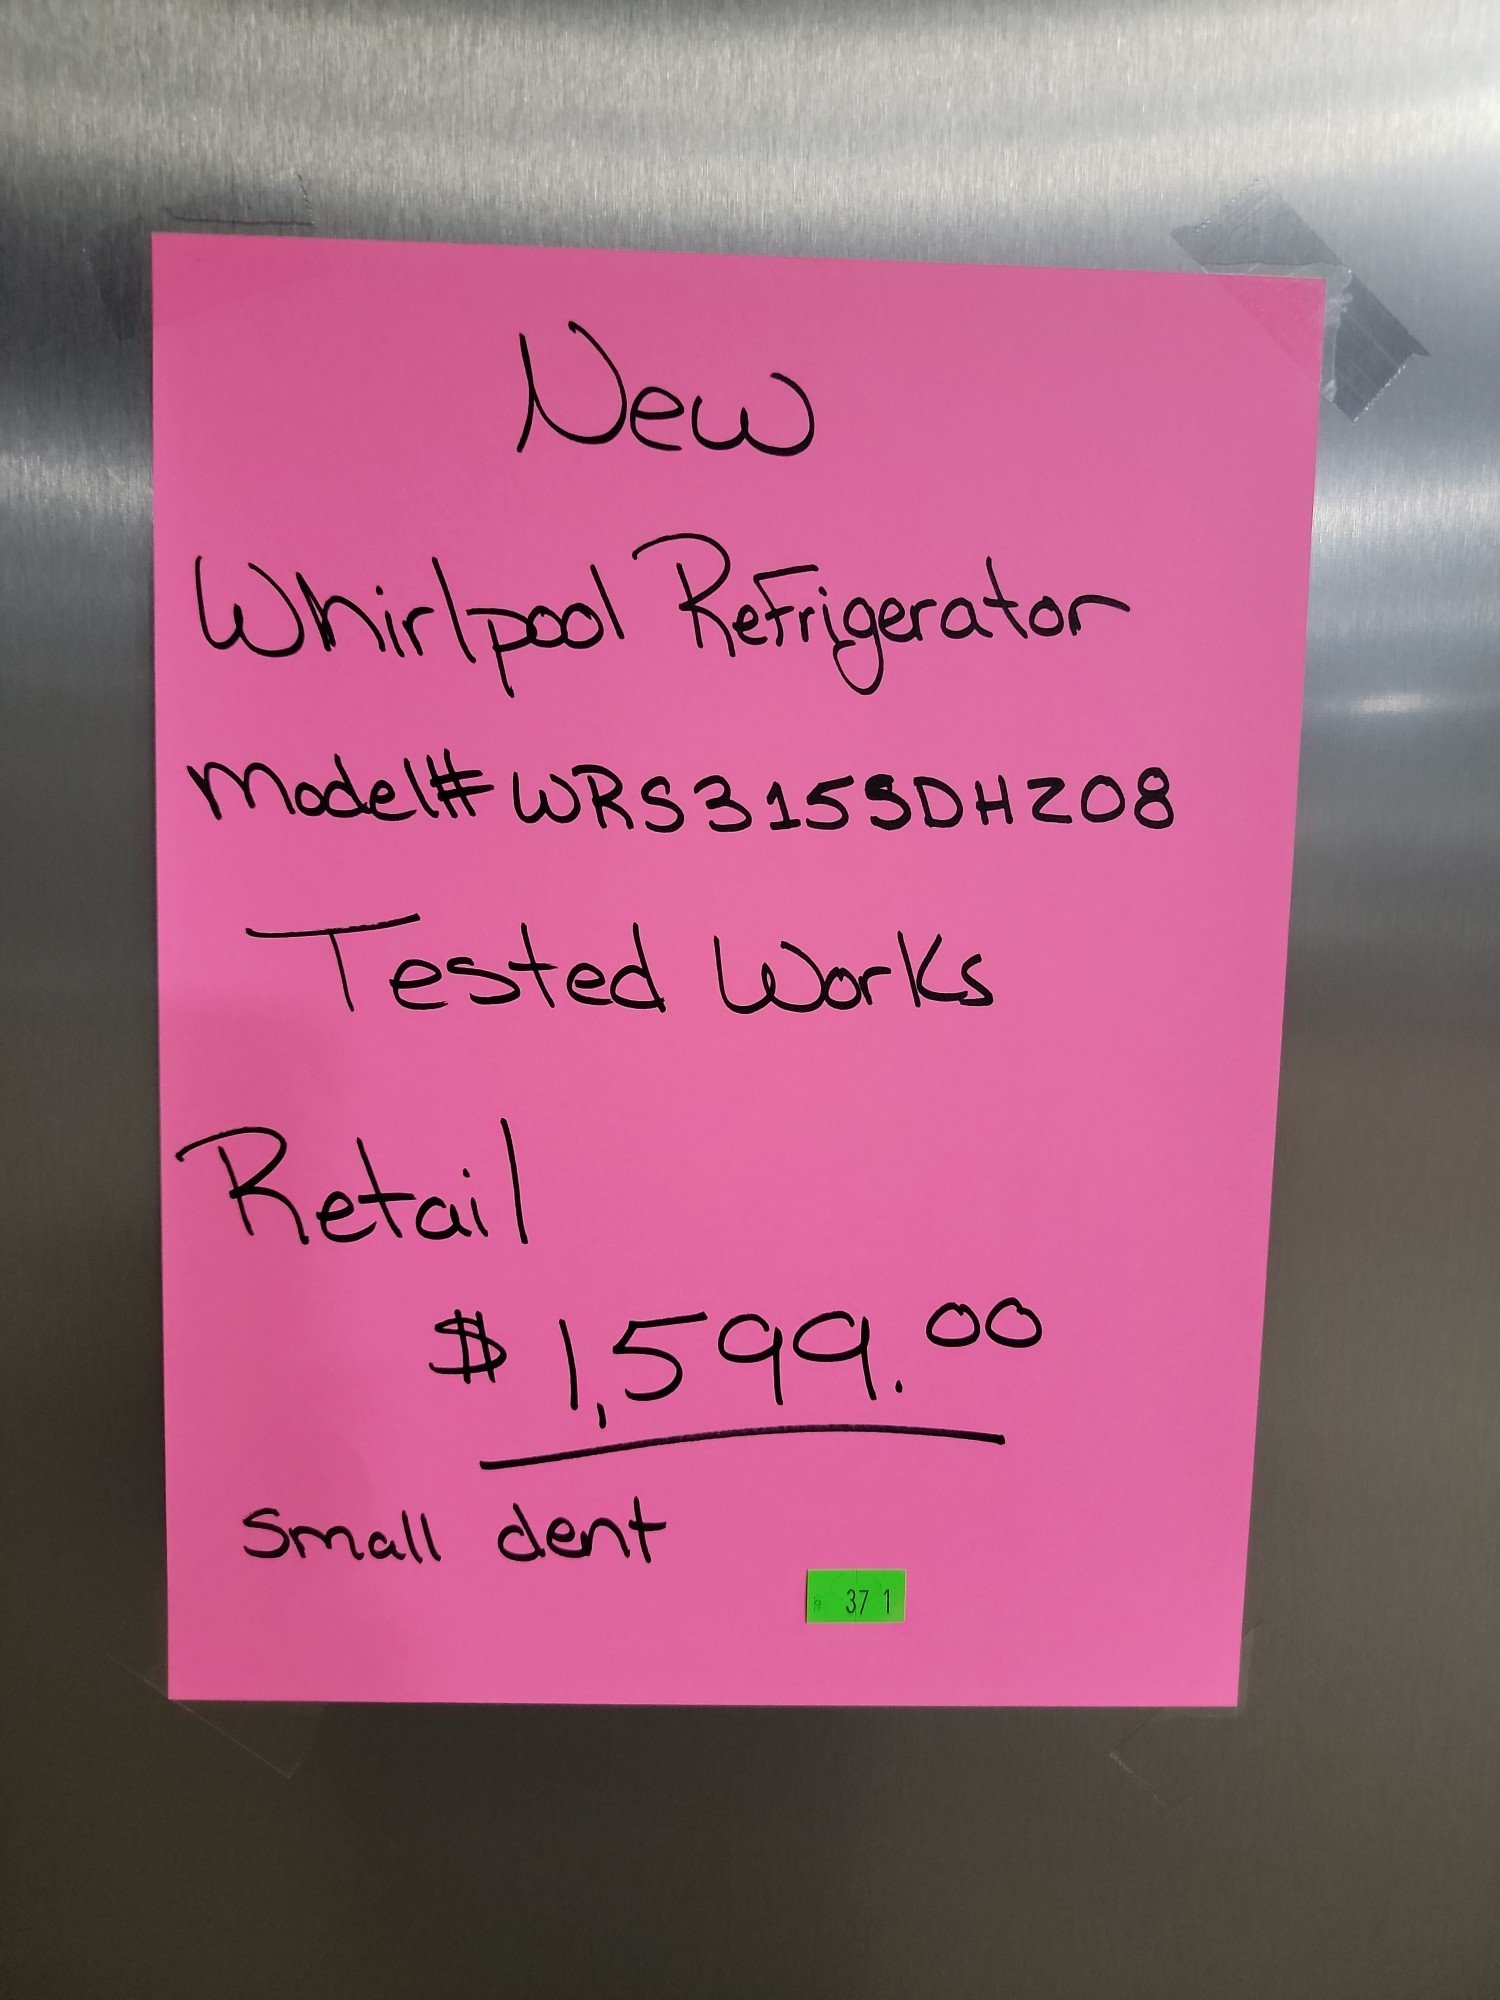 New
Whirlpool Refrigerator
Model# WRS315SDHZ08
Tested Works
Retail
$1,599.00
Small dent
37 1